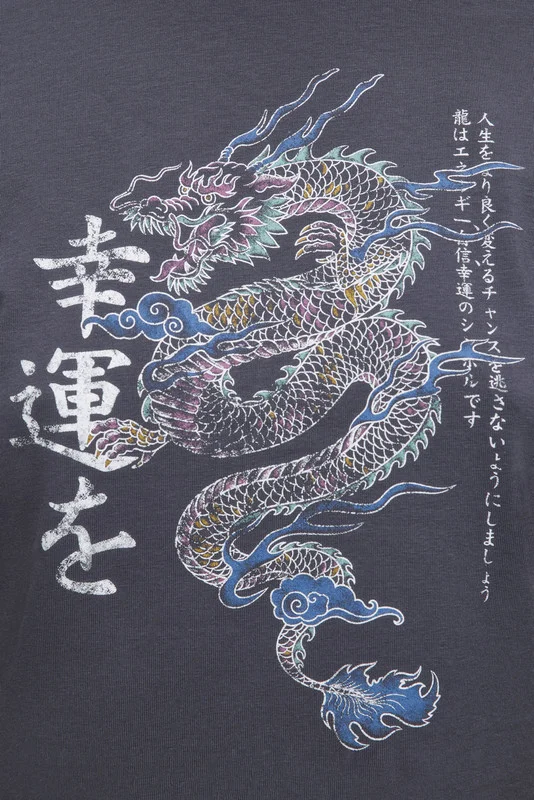 人生をより良く変えるチャンスを逃さないようにしましょう
龍はエネルギー、自信幸運のシンボルです
幸運を